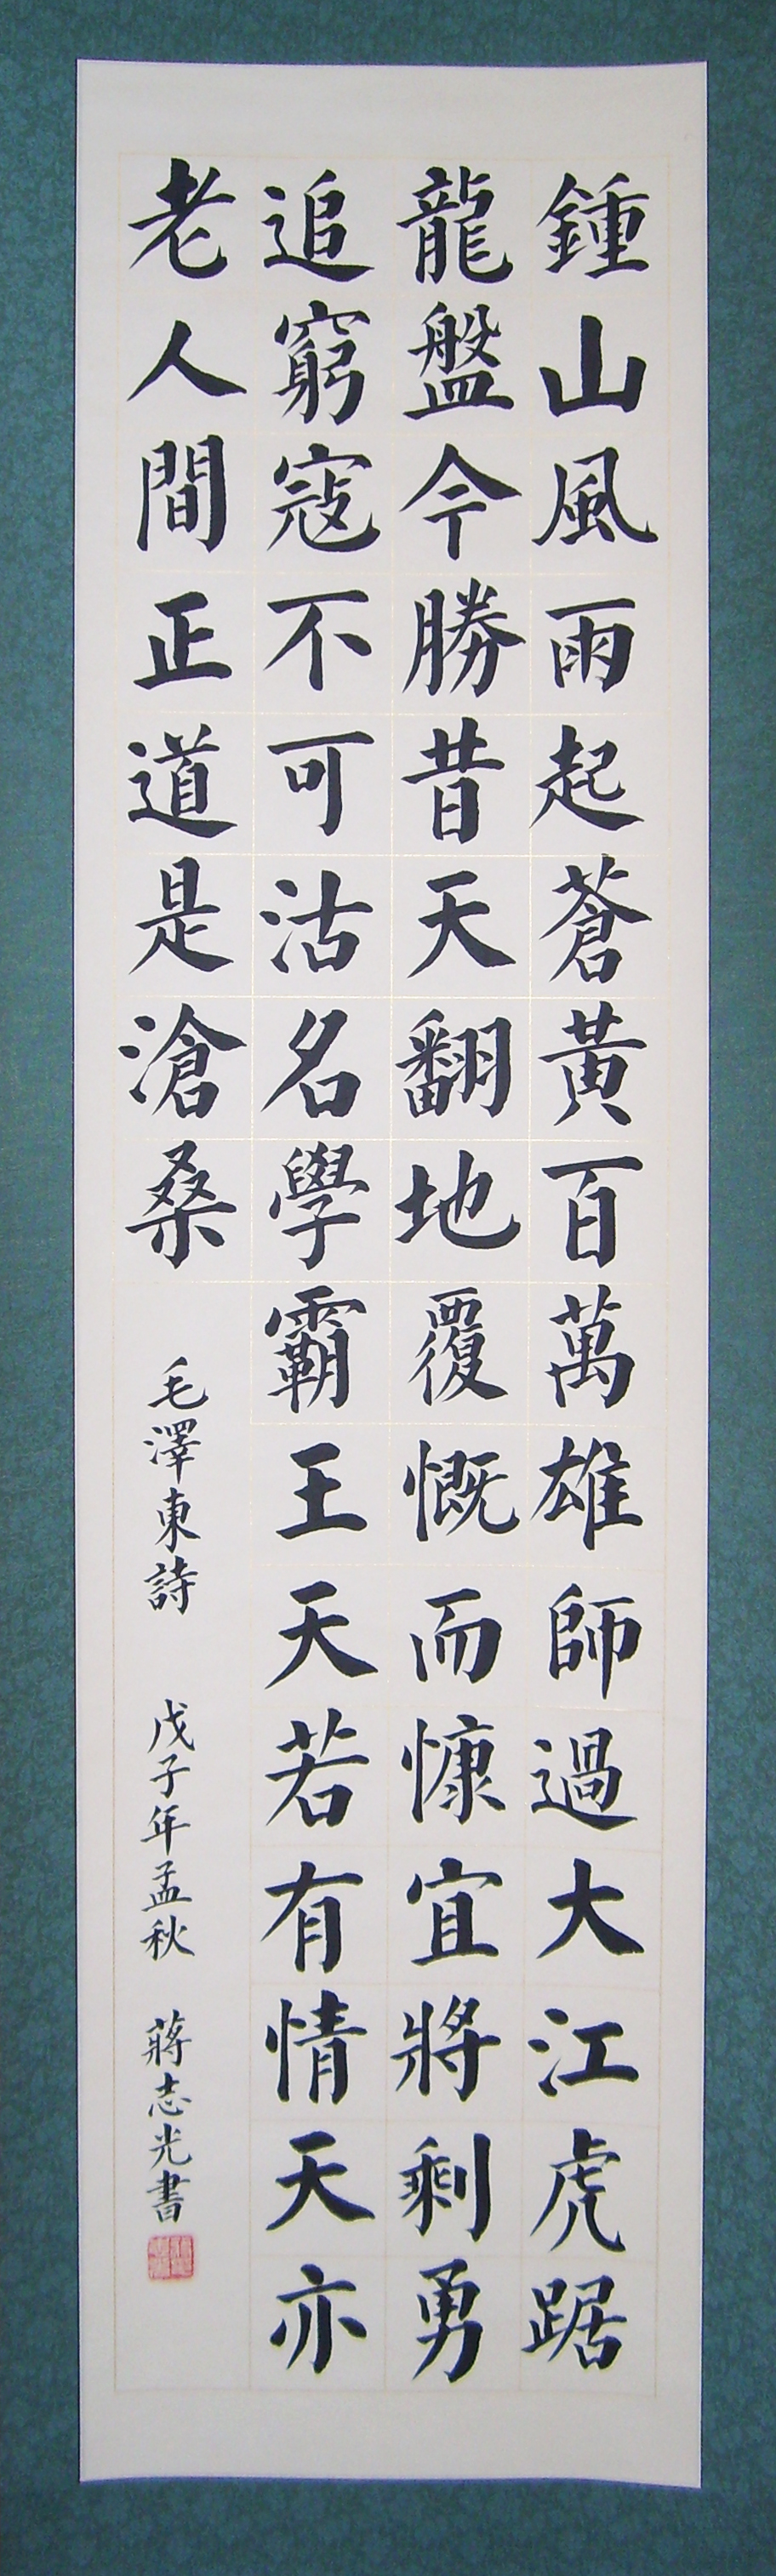 鍾山風雨起蒼黃百萬雄師過大江虎踞
龍盤今勝昔天翻地覆慨而慷宜將剩勇
追窮寇不可沽名學霸王天若有情天亦
老人間正道是滄桑
毛澤東詩 戊子年孟秋 蔣志光書